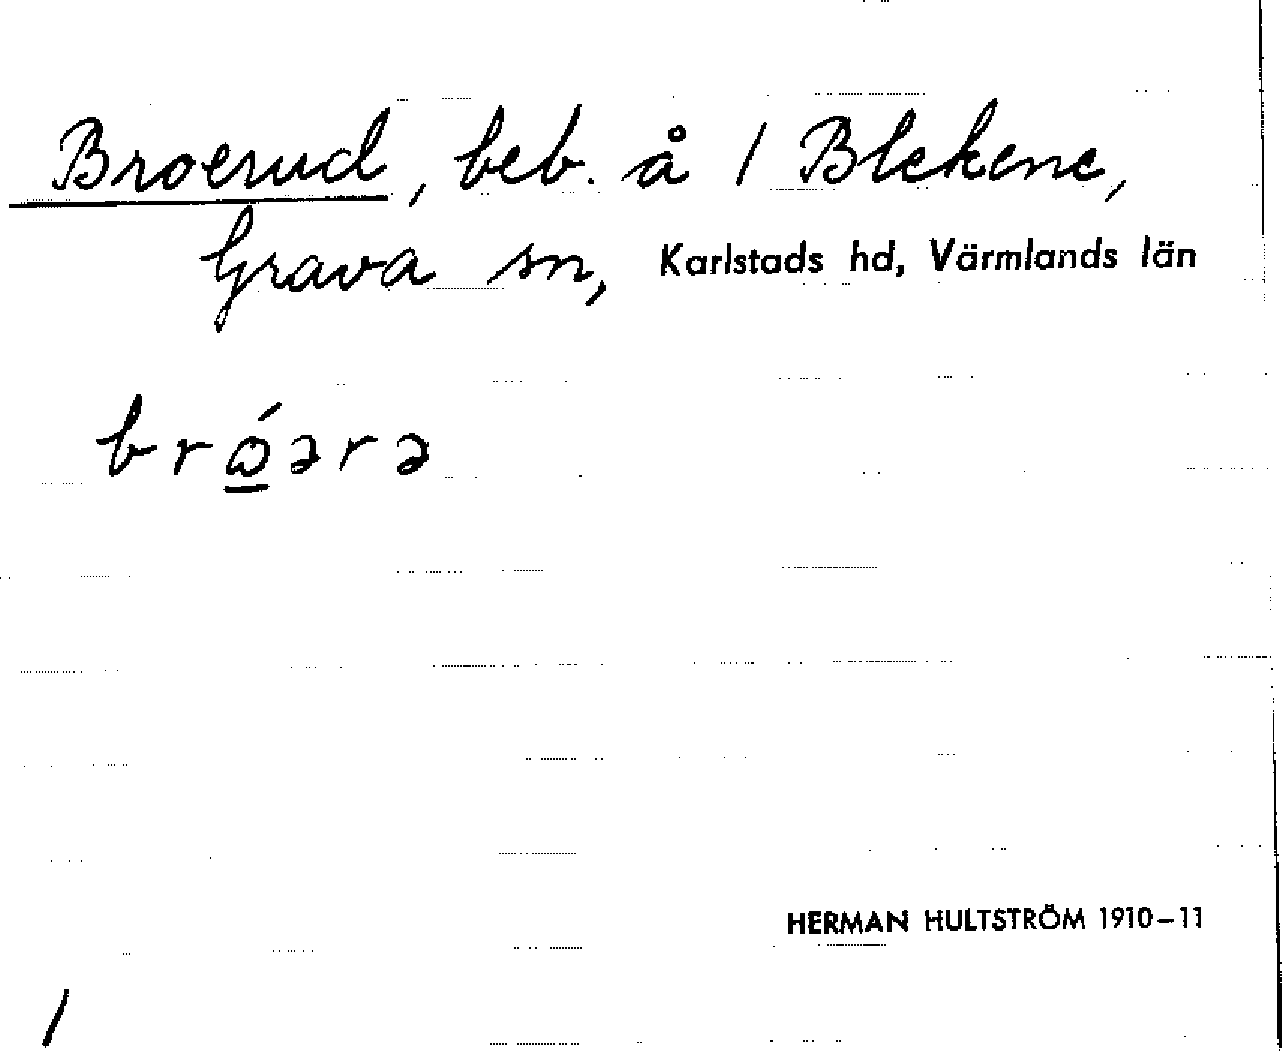 Broerud, beb. å 1 Blekene,
Grava sn, Karlstads hd, Värmlands län
brώ̲ərə
HERMAN HULTSTRÖM 1910–11
/